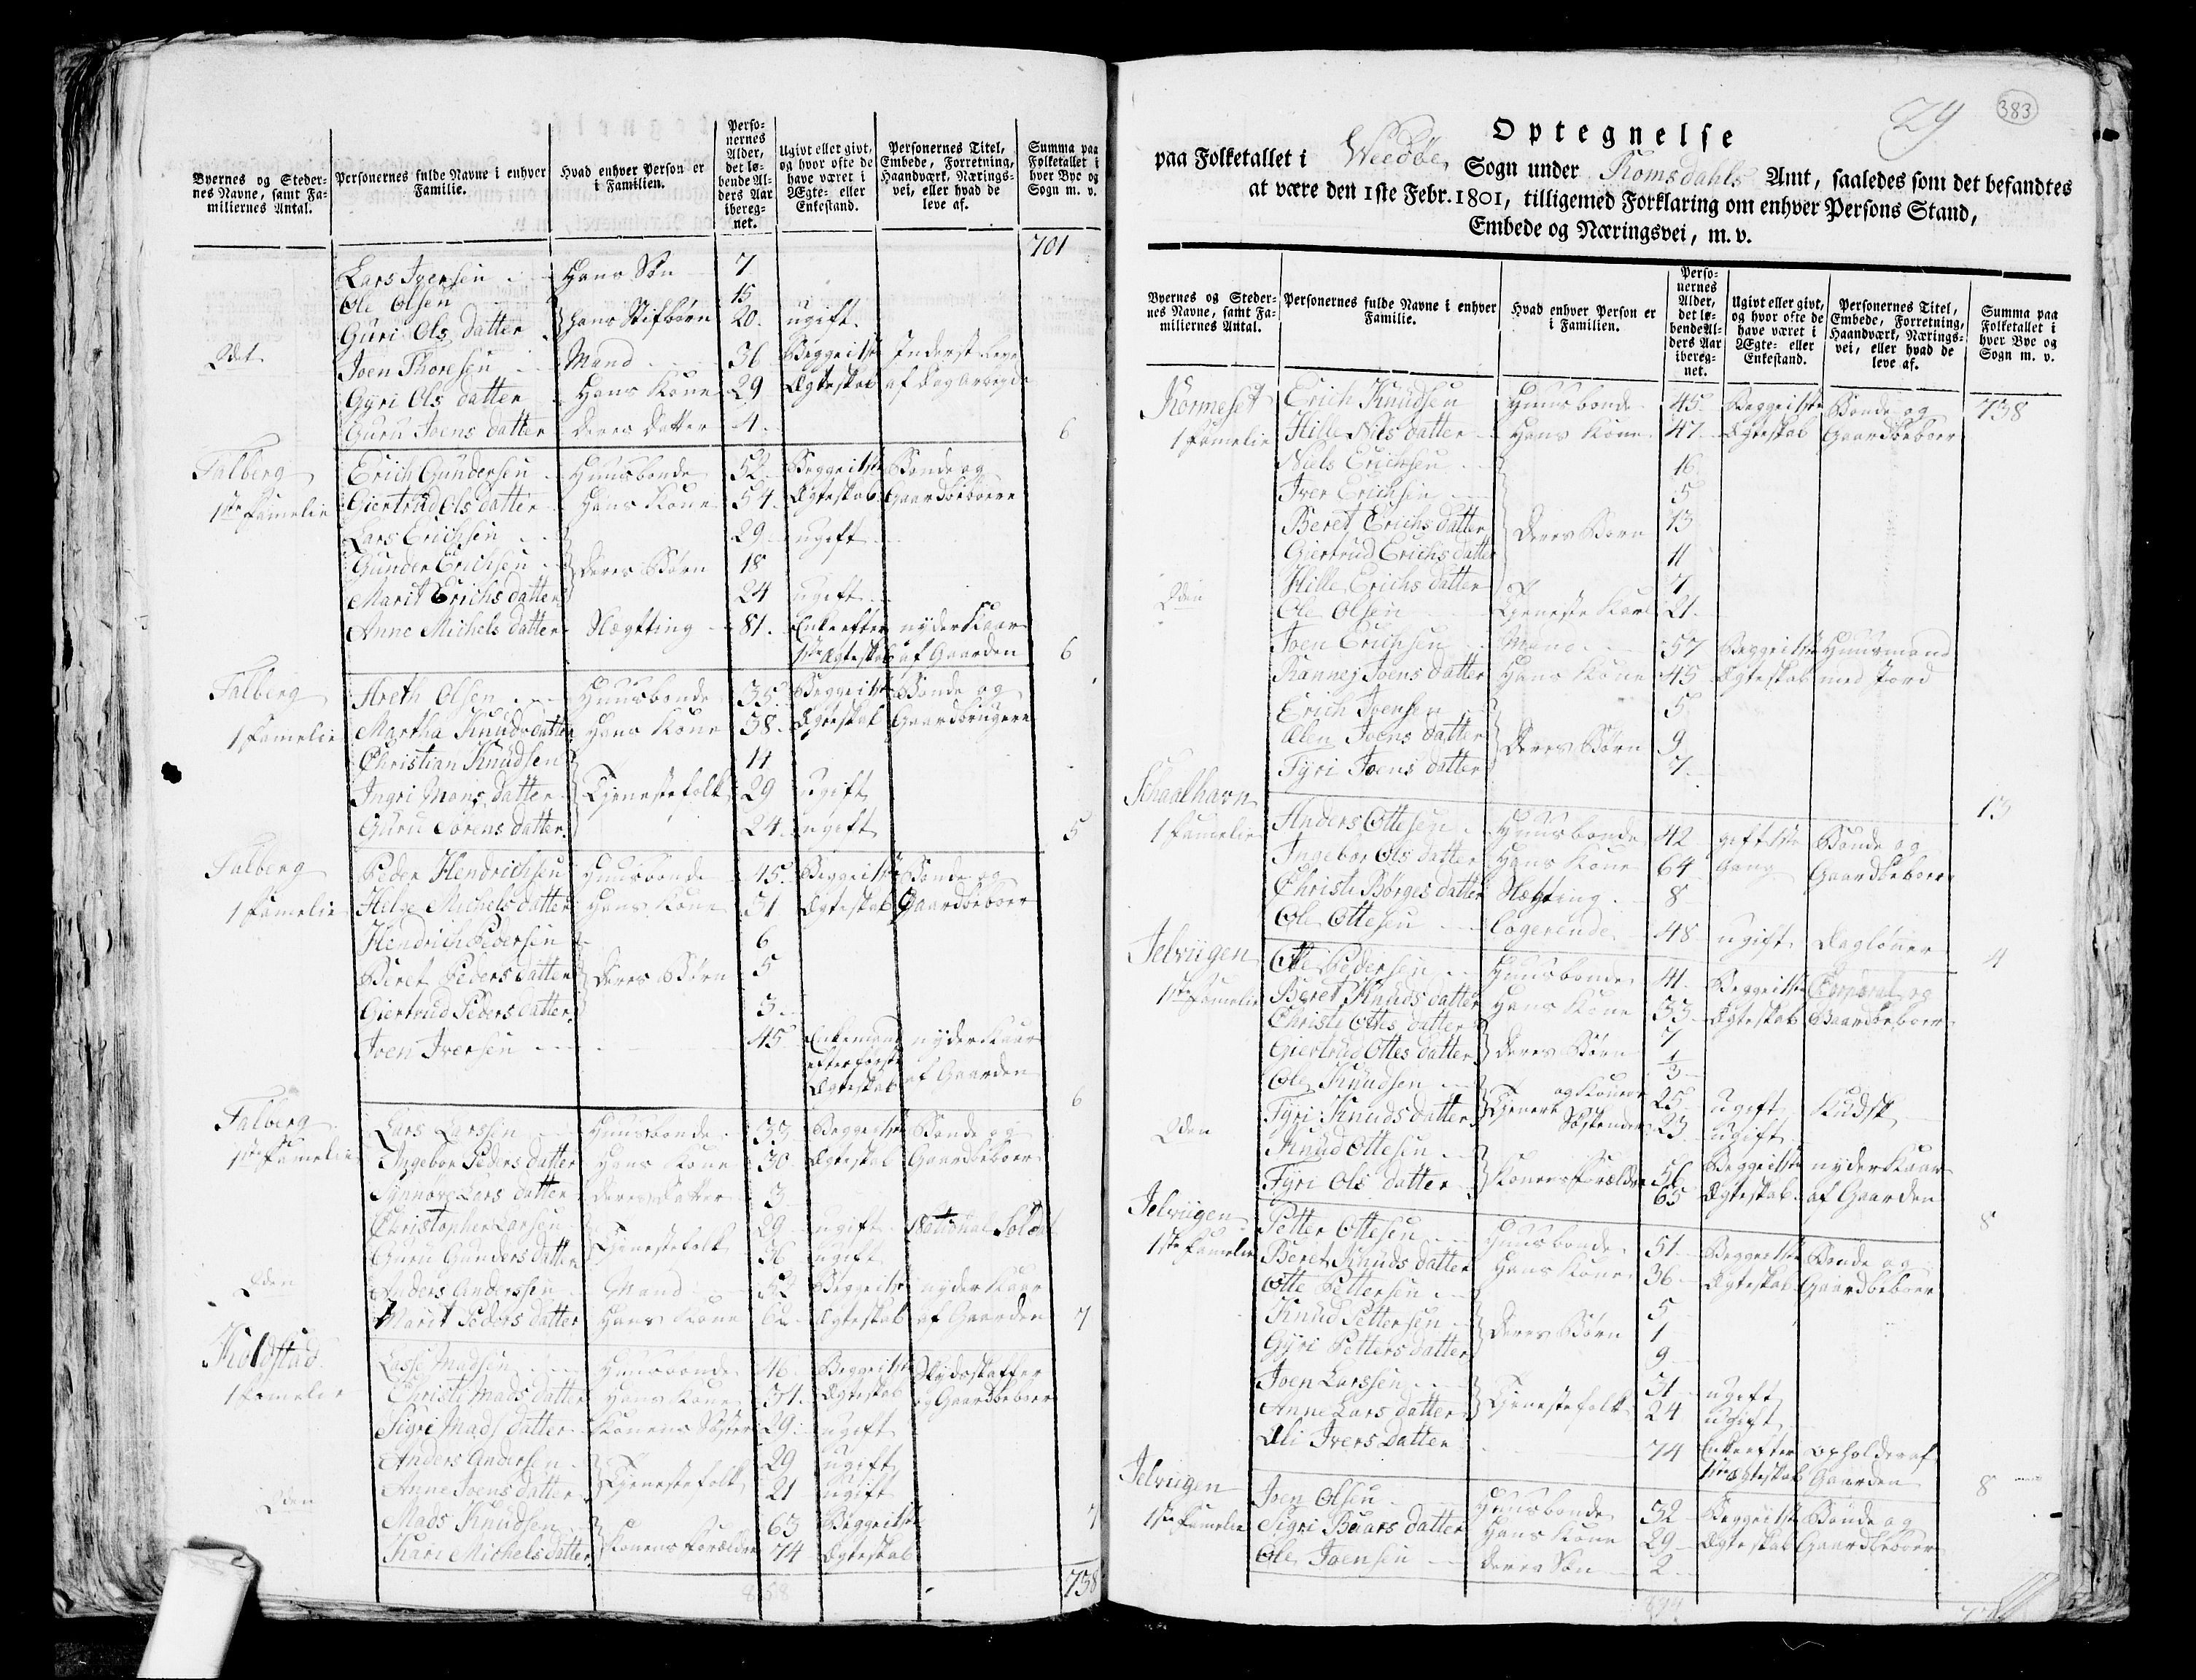 Byernes og Steder-
nes Navne, samt Fa-
miliernes Antal.
Personernes fulde Navne i enhver
Familie.
Hvad enhver Person er
i Familien.
Perso-
nernes
Alder,
det lø-
bende Al-
ders Aar
ibereg-
net.
Ugivt eller givt,
og hvor ofte de
have været i
Ægte- eller
Enkestand.
Personernes Titel,
Embede, Forretning,
Haandværk, Nærings-
vei, eller hvad de
leve af.
Summa paa
Folketallet i
hver Bye og
Sogn m. v.
701
Lars Iversen Hans Søn 7
Ole Olsen 15
Guri Ols datter Hans Stifbørn 20. ugift.
Joen Thoresen Mand 36 Begge i 1ste Inderst leve
Gyri Ols datter Hans Kone 29 Ægteskab af Dag Arbeyde
Guru Joens datter Deres datter 4. 6
Talberg Erich Gundersen Huusbonde 52 Begge i 1ste Bonde og
1ste Famelie Giertrud Ols datter Hans Kone 54. Ægteskab Gaardbeboere
Lars Erichsen 29 ugift
Gunder Erichsen Deres Børn 18
Marit Erichs datter 24 ugift
Anne Michels datter Slægtning 81. Enke efter nyder Kaar
1ste Ægteskab af Gaarden 6
Talberg Areth Olsen Huusbonde 35. Begge i 1ste Bonde og
1 Famelie Martha Knuds datter Hans Kone 38. Ægteskab Gaardbrugere
Christian Knudsen 14
Ingri Mons datter Tjenestefolk 29 ugift
Guru Sørens datter. 24. ugift 5
Talberg Peder Hendrichsen Huusbonde 45. Begge i 1ste Bonde og
1 Famelie Helge Michels datter Hans Kone 31 Ægteskab Gaardbeboer
Hendrich Pedersen 6
Beret Peders datter Deres Børn 5
Giertrud Peders datter. 3
Iver Iversen 45 Enkemand nyder Kaar
efter første af Gaarden
Ægteskab 6
Talberg Lars Larssen Huusbonde 33 Begge i 1ste Bonde og
1ste Famelie Ingebor Peders datter Hans Kone 30 Ægteskab Gaardbeboer
Synnøve Lars datter Deres datter 3
Christopher Larsen 29 ugift National Soldat
Guru Gunders datter Tjenestefolk 36 ugift
Anders Anderssen Mand 52 Begge i 1ste nyder Kaar
Marit Peders datter Hans Kone 62 Ægteskab af Gaarden 7
Koldstad Lasse Madsen Huusbonde 46 Begge i 1ste Skydsskaffer
1 Famelie Christi Mads datter Hans Kone 31. Ægteskab og Gaardbeboer
Sigri Mads datter Konens Søster 29. ugift
Anders Andersen 29 ugift
Anne Joens datter Tjenestefolk 21 ugift
Mads Knudsen 63 Begge i 1ste 7
Kari Michels datter. Konens Forældre 74 Ægteskab
738
29 383
Optegnelse
paa Folketallet i Weedøe Sogn under Romsdahls Amt, saaledes som det befandtes
at være den 1ste Febr. 1801, tilligemed Forklaring om enhver Persons Stand,
Embede og Næringsvei, m. v.
Byernes og Steder-
nes Navne, samt Fa-
miliernes Antal.
Personernes fulde Navne i enhver
Familie.
Hvad enhver Person er
i Familien.
Perso-
nernes
Alder,
det lø-
bende Al-
ders Aar
ibereg-
net.
Ugivt eller givt,
og hvor ofte de
have været i
Ægte- eller
Enkestand.
Personernes Titel,
Embede, Forretning,
Haandværk, Nærings-
vei, eller hvad de
leve af.
Summa paa
Folketallet i
hver Bye og
Sogn m. v.
Kormeset Erich Knudsen Huusbonde 45. Begge i 1ste Bonde og 738
1 Famelie Hille Nils datter Hans Kone 47. Ægteskab Gaardbeboer
Niels Erichsen 16
Iver Erichsen 5
Beret Erichs datter Deres Børn 13
Giertrud Erichs datter 11
Hille Erichs datter 7
Ole Olsen Tjeneste Karl 21.
Joen Erichsen Mand 57 Begge i 1ste Huusmand
Rannej Joens datter Hans Kone 45 Ægteskab med Jord
Erich Joensen 5
Olen Joens datter Deres Børn 9
Tyri Joens datter 7. 13
Schaalhavn Anders Ottesen Huusbonde 42 gift 1ste Bonde og
1 Famelie Ingebor Ols datter Hans Kone 64 Gang Gaardbeboer
Christi Børges datter Slægtning 8
Ole Ottesen Logerende 48 ugift Dagløner 4
Jelviigen Otte Pedersen Huusbonde 41. Begge i 1ste Corporal og
1ste Famelie Beret Knuds datter Hans Kone 33 Ægteskab Gaardbeboer
Christi Ottes datter 7
Giertrud Ottes datter Deres Børn 1/3
Ole Knudsen 25 ugift Kudsk
Tyri Knuds datter Tjenere og Konens Søskende 23 ugift
Knud Ottesen 56 Begge i 1ste nyder Kaar
Tyri Ols datter Konens Forældre 65 Ægteskab af Gaarden 8
Jelviigen Petter Ottesen Huusbonde 51 Begge i 1ste Bonde og
1ste Famelie Beret Knuds datter Hans Kone 36 Ægteskab Gaardbeboer
Otte Pettersen 5
Knud Pettersen Deres Børn 1
Gyri Petters datter 9
Joen Larssen 31 ugift
Anne Lars datter Tjenestefolk 24 ugift
Ali Ivers datter 74 Enke efter opholdes af
1ste Ægteskab Gaarden 8
Jelviigen Iver Olsen Huusbonde 32 Begge i 1ste Bonde og
1ste Famelie Sigri Baars datter Hans Kone 29 Ægteskab Gaardbeboer
Ole Joensen Deres Søn 2